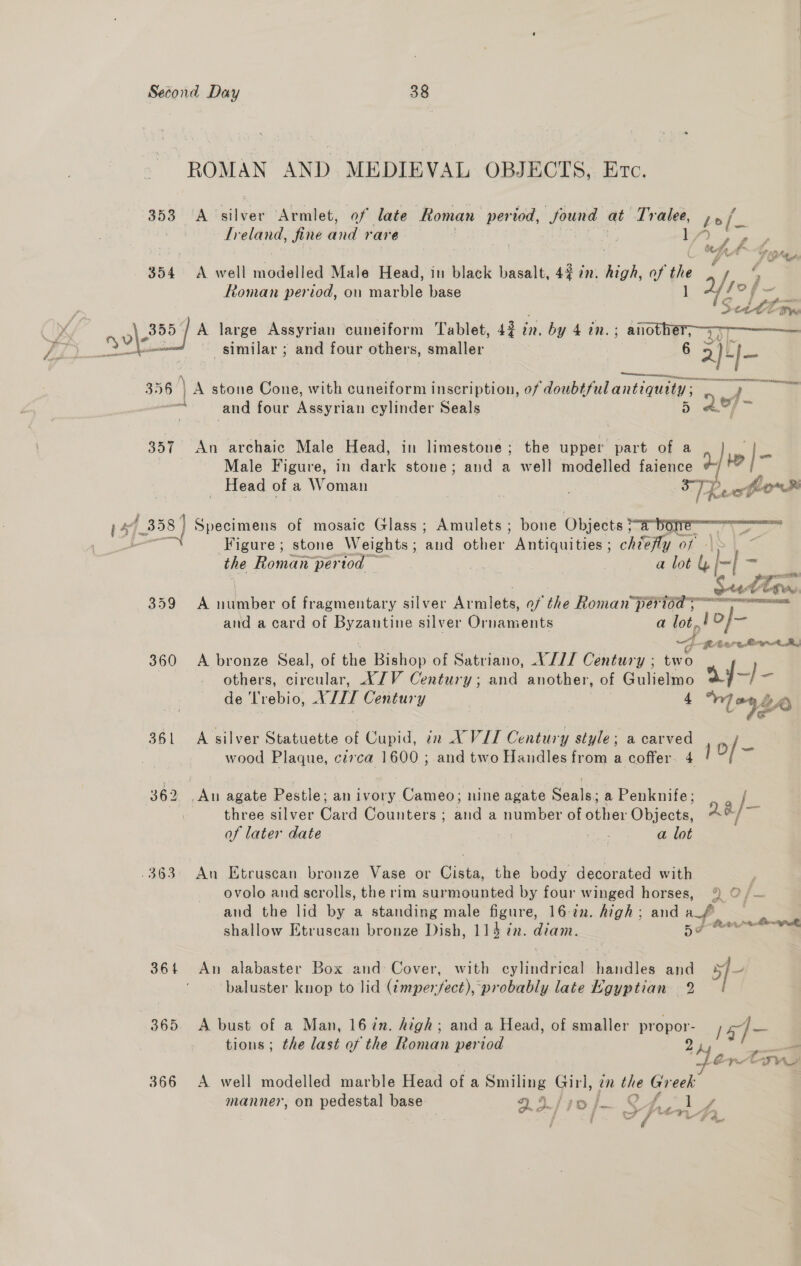 Second Day 38
ROMAN AND MEDIEVAL OBJECTS, Etc.
353 A silver Armlet, of late Roman period, found at Tralee,
Ireland, fine and rare 1
354 A well modelled Male Head, in black basalt, 4¾ in. high, of the
Roman period, on marble base 1
355 A large Assyrian cuneiform Tablet, 4¾ in. by 4 in.; another,
similar; and four others, smaller 6
356 A stone Cone, with cuneiform inscription, of doubtful antiquity;
and four Assyrian cylinder Seals 5
357 An archaic Male Head, in limestone; the upper part of a
Male Figure, in dark stone; and a well modelled faience
Head of a Woman 3
358 Specimens of mosaic Glass; Amulets; bone Objects; a bone
Figure; stone Weights; and other Antiquities; chiefly of
the Roman period a lot
Sutton
359 A number of fragmentary silver Armlets, of the Roman period;
and a card of Byzantine silver Ornaments a lot 10/-
360 A bronze Seal, of the Bishop of Satriano, XIII Century; two
others, circular, XIV Century; and another, of Gulielmo
de Trebio, XIII Century 4
361 A silver Statuette of Cupid, in XVII Century style; a carved
wood Plaque, circa 1600; and two Handles from a coffer 4 10/-
362 An agate Pestle; an ivory Cameo; nine agate Seals; a Penknife;
three silver Card Counters; and a number of other Objects,
of later date a lot
363 An Etruscan bronze Vase or Cista, the body decorated with
ovolo and scrolls, the rim surmounted by four winged horses,
and the lid by a standing male figure, 16 in. high; and a
shallow Etruscan bronze Dish, 11½ in. diam.
364 An alabaster Box and Cover, with cylindrical handles and 5/-
baluster knop to lid (imperfect), probably late Egyptian 2
365 A bust of a Man, 16 in. high; and a Head, of smaller propor-
tions; the last of the Roman period 2
366 A well modelled marble Head of a Smiling Girl, in the Greek
manner, on pedestal base 22/10/-